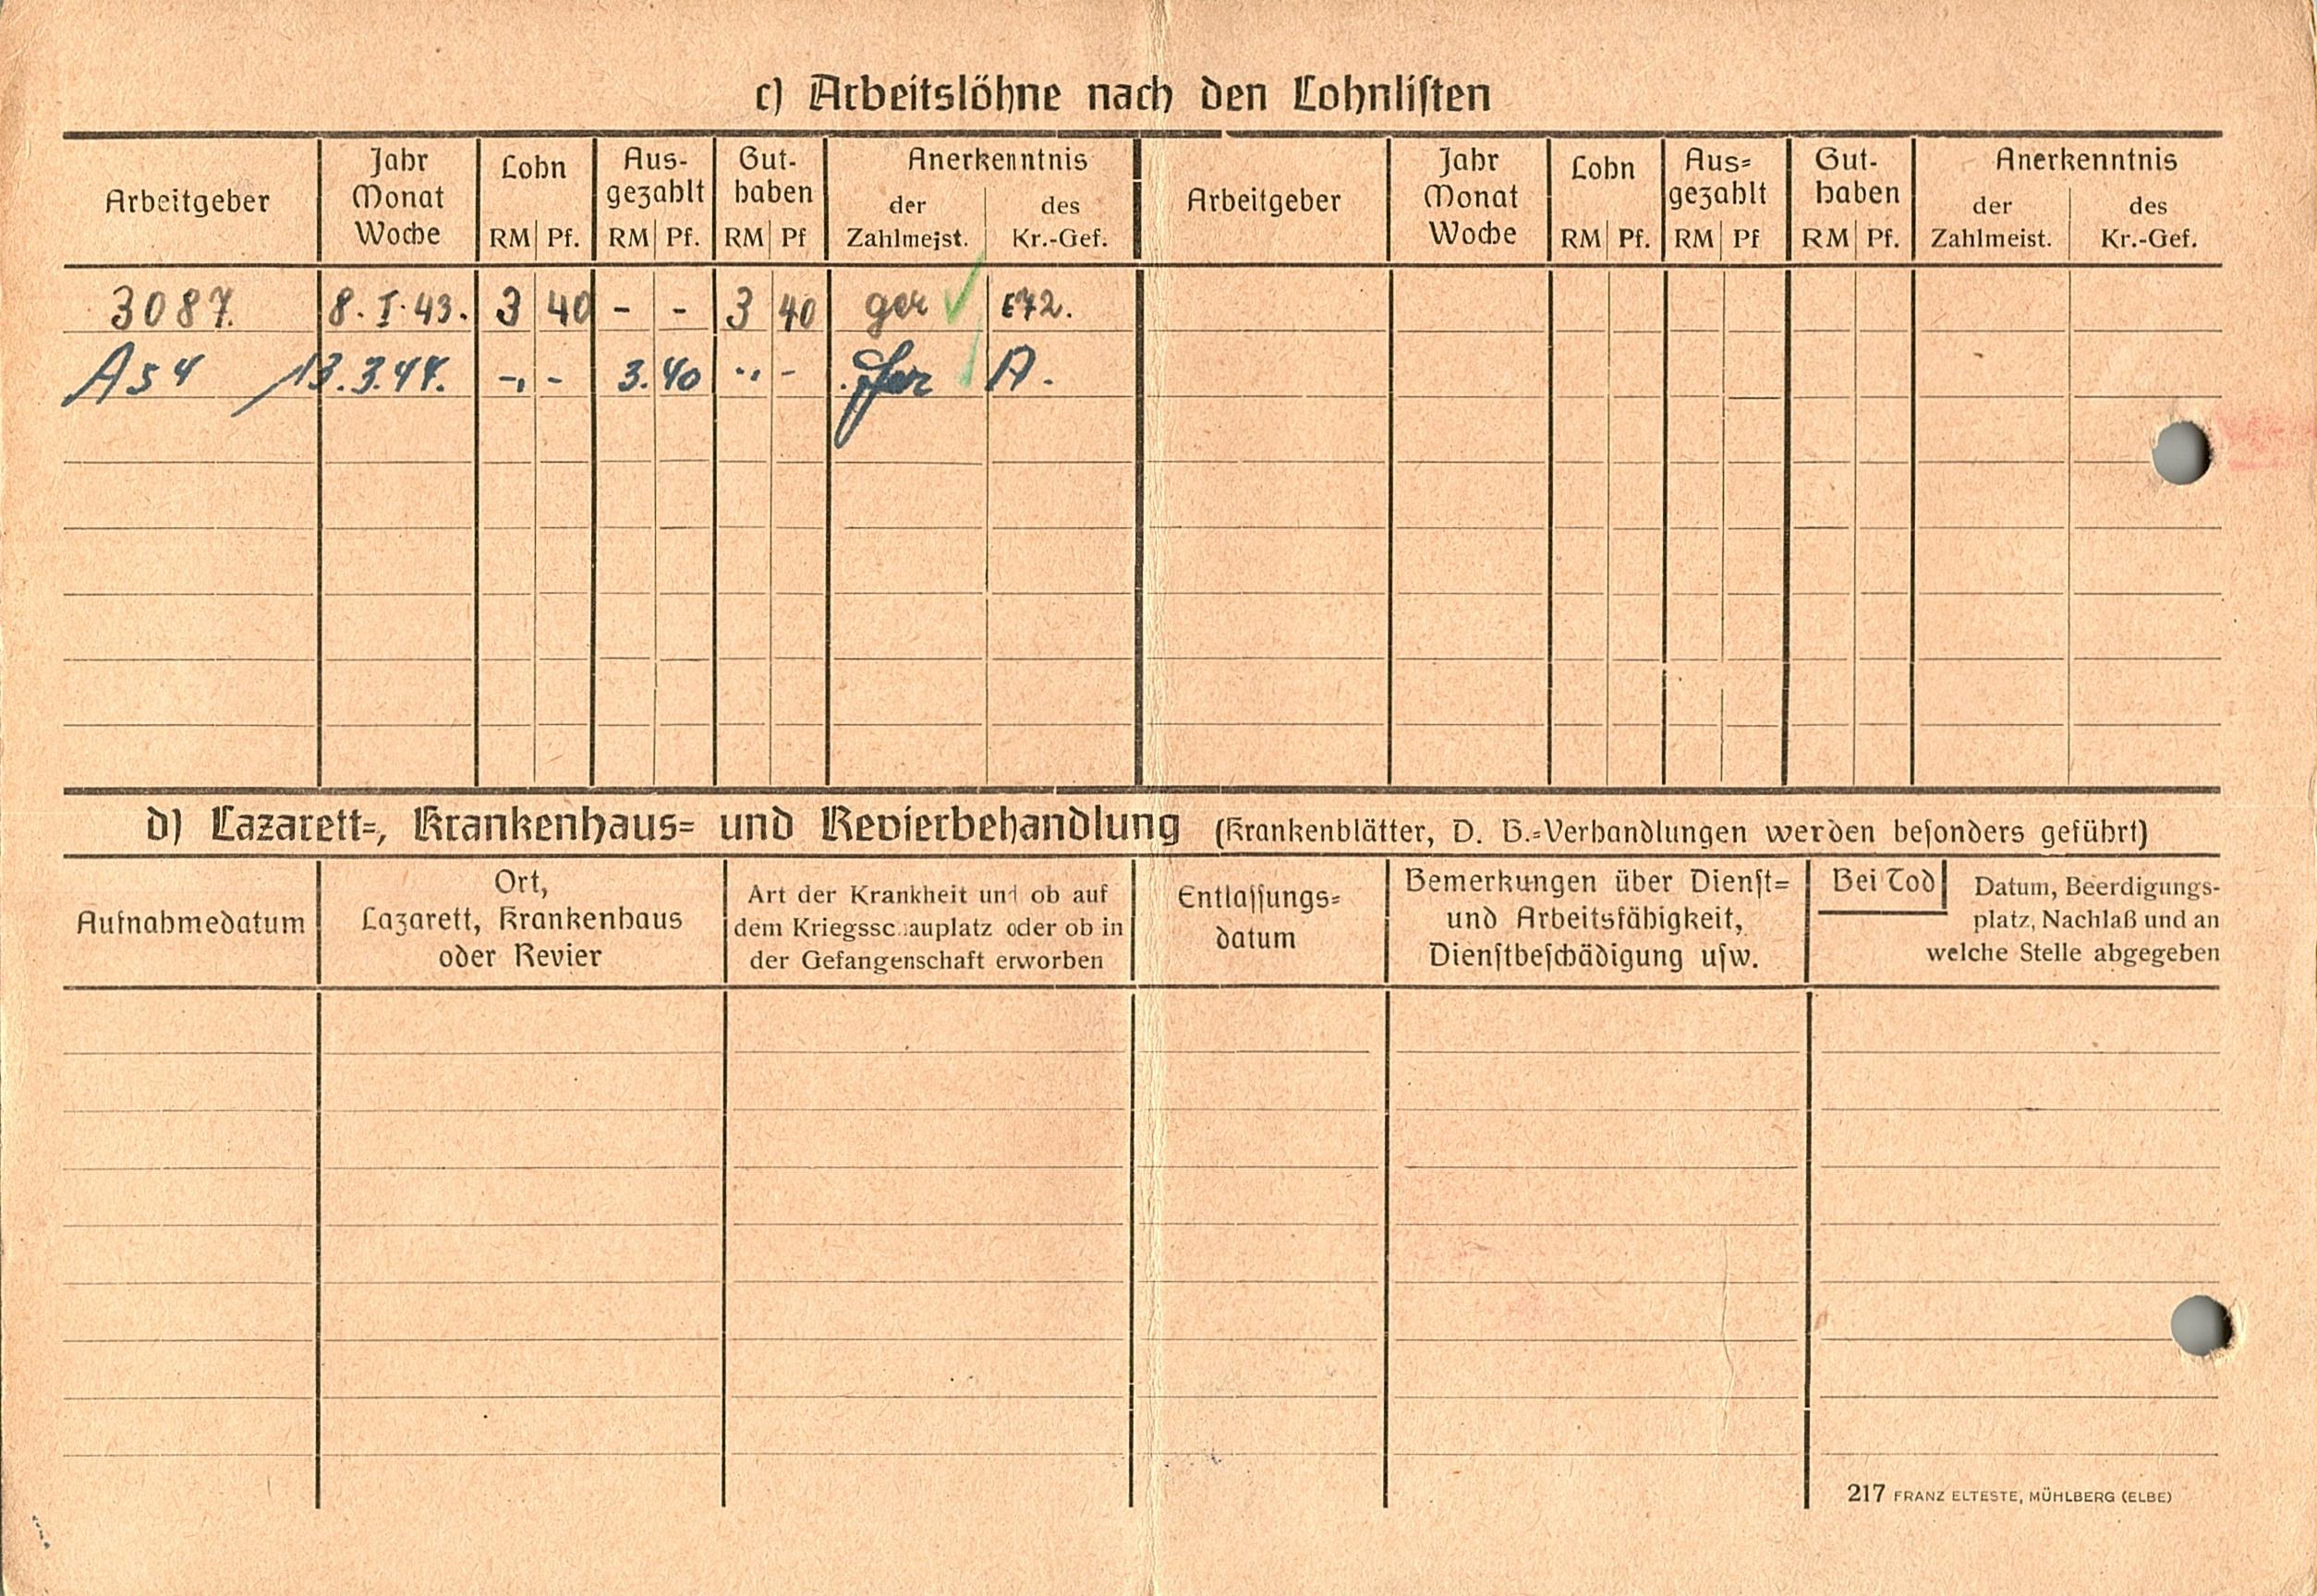 c) Arbeitslöhne nach den Lohnlisten
Arbeitgeber
Jahr
Monat
Woche
Lohn
RM Pf.
Aus-
gezahlt
RM Pf.
Gut-
haben
RM Pf
Anerkenntnis
der
Zahlmeist.
des
Kr.-Gef.
Arbeitgeber
Jahr
Monat
Woche
Lohn
RM Pf.
Aus-
gezahlt
RM Pf
Gut-
haben
RM Pf.
Anerkenntnis
der
Zahlmeist.
des
Kr.-Gef.
3087. 8. I. 43. 3 40 - - 3 40 E72.
A54 13.3.44. -,- 3.40 A.
d) Lazarett-, Krankenhaus- und Revierbehandlung (Krankenblätter, D. B.-Verhandlungen werden besonders geführt)
Aufnahmedatum
Ort,
Lazarett, Krankenhaus
oder Revier
Art der Krankheit und ob auf
dem Kriegsschauplatz oder ob in
der Gefangenschaft erworben
Entlassungs-
datum
Bemerkungen über Dienst-
und Arbeitsfähigkeit,
Dienstbeschädigung usw.
Bei Tod Datum, Beerdigungs-
platz, Nachlaß und an
welche Stelle abgegeben
217 FRANZ ELTESTE, MÜHLBERG (ELBE)